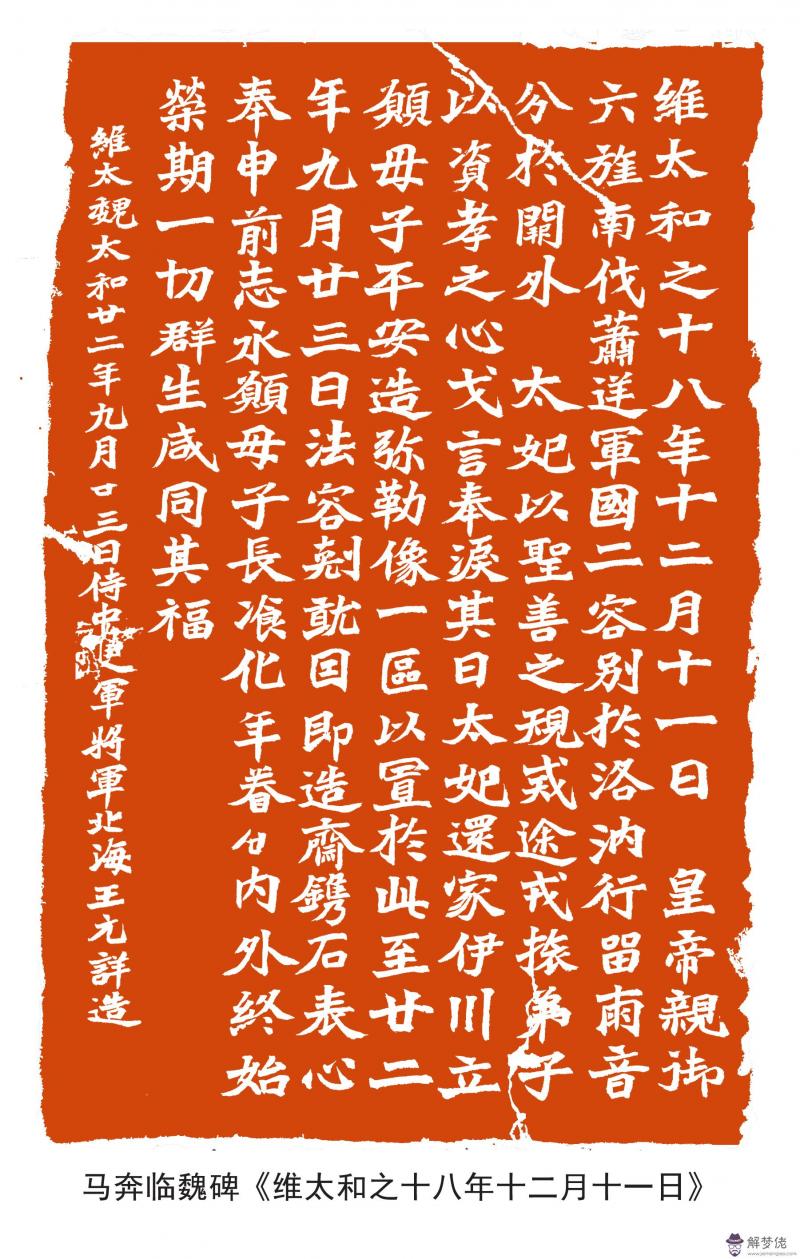 維太和之十八年十二月十一日 皇帝親御
六旌南伐蕭逆軍國二容別於洛汭行留雨音
分於闕外 太妃以聖善之規戒途戎旅弟子
以資孝之心戈言奉淚其日太妃還家伊川立
願母子平安造弥勒像一區以置於此至廿二
年九月廿三日法容剋就因即造齋鐫石表心
奉申前志永願母子長飡化年眷分內外終始
榮期一切群生咸同其福
維太魏太和廿二年九月廿三日侍中軍將軍北海王元詳造
马奔临魏碑《维太和之十八年十二月十一日》
解梦佬